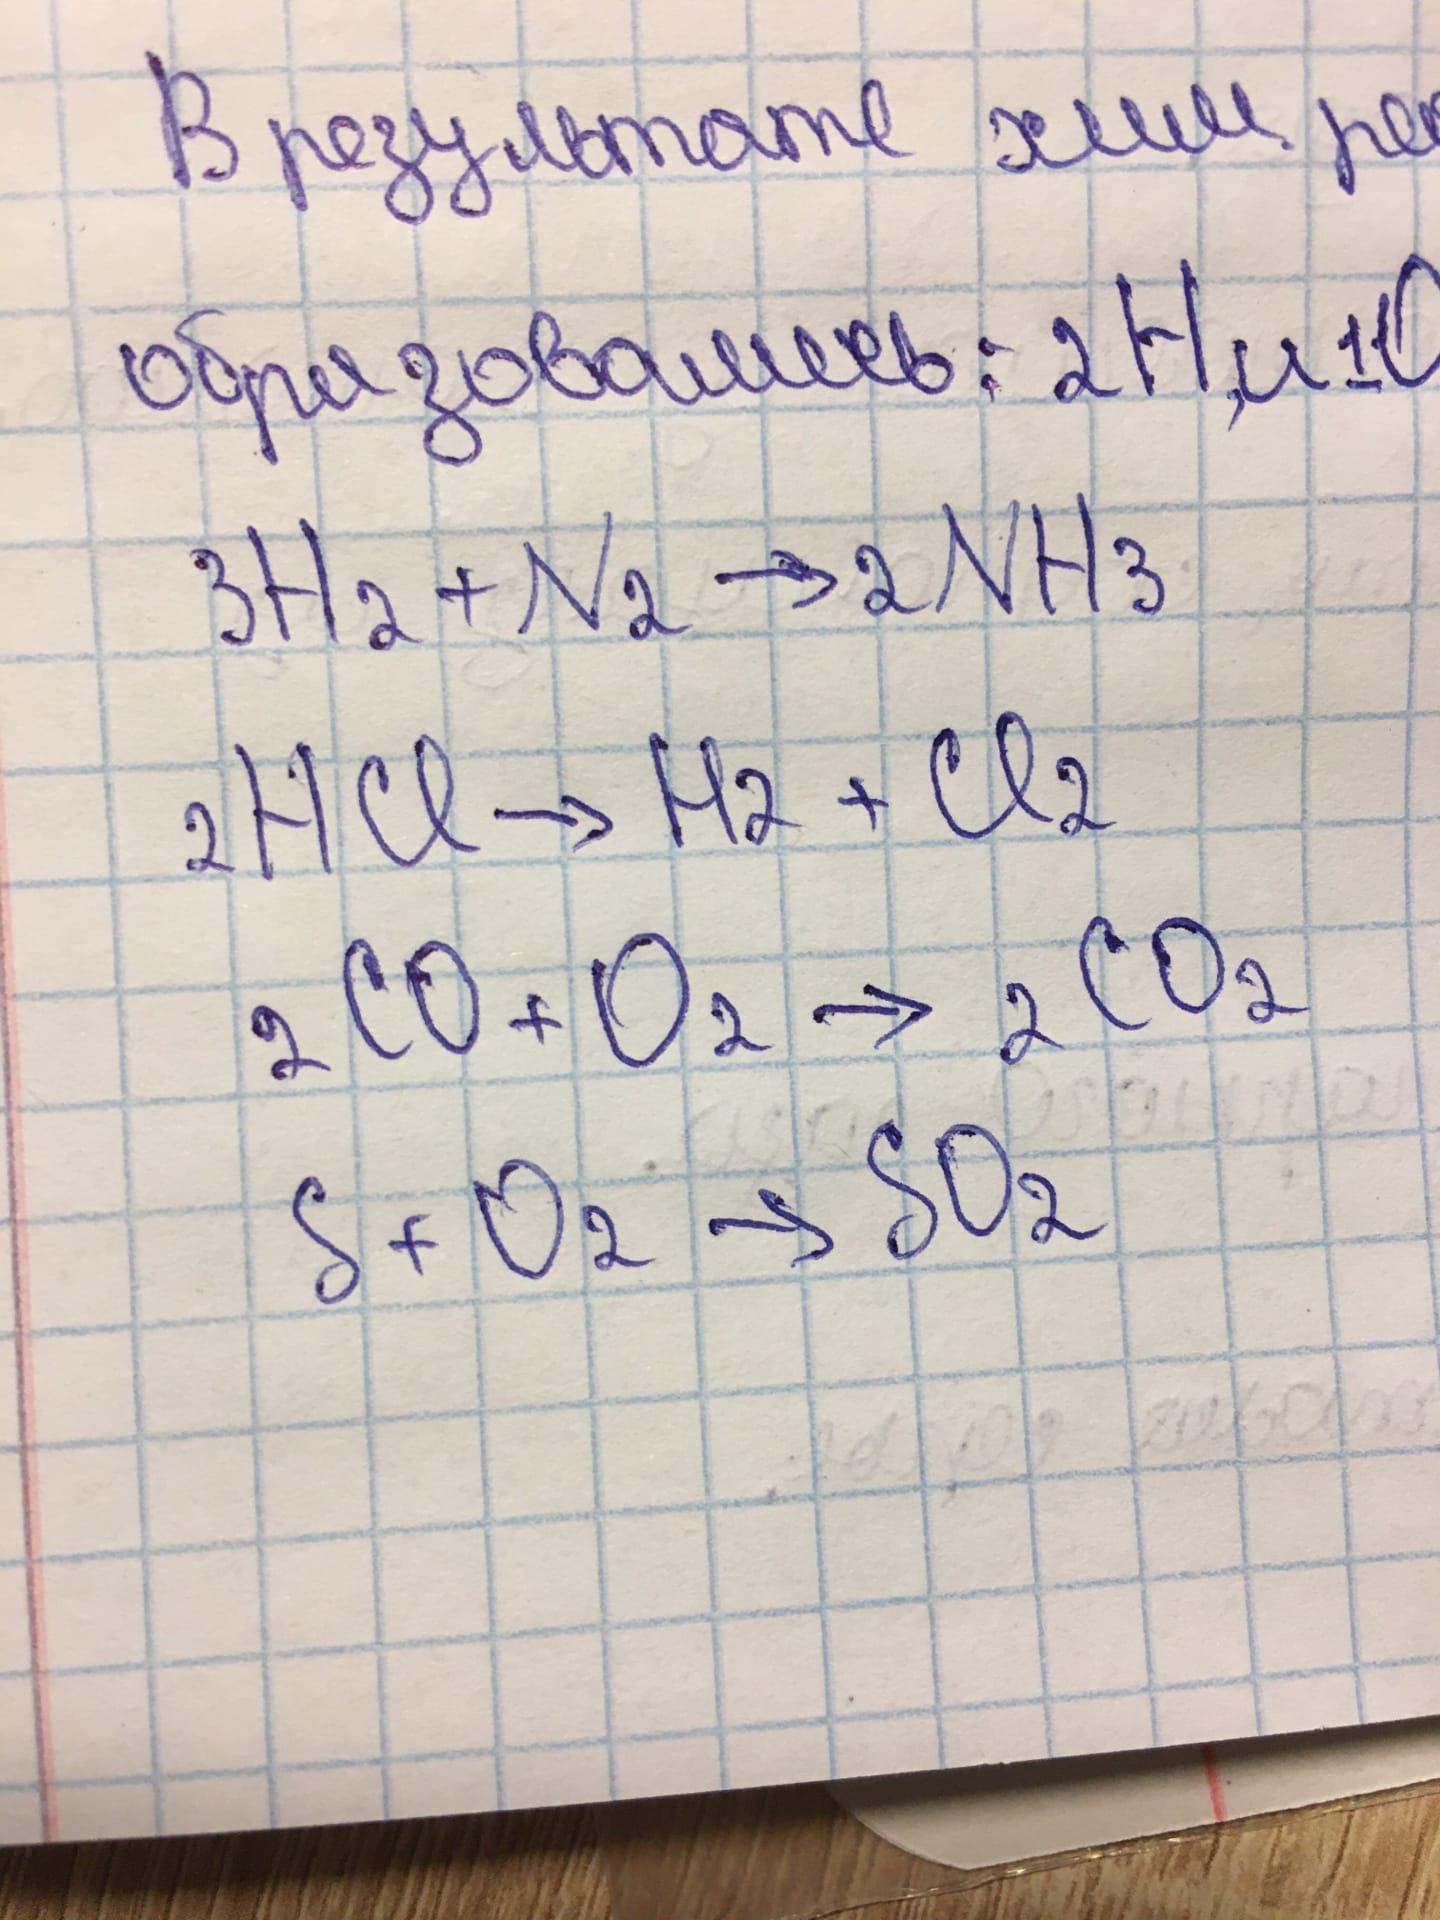 В результате хим. реа
образовались: 2H, и 1O
3H2 + N2 → 2NH3
2HCl → H2 + Cl2
2CO + O2 → 2CO2
S + O2 → SO2